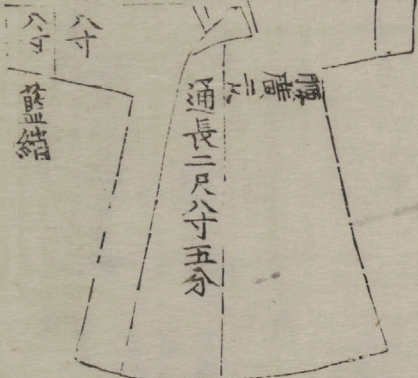 廣二
通長二尺八寸五分
八寸
八寸
藍綃